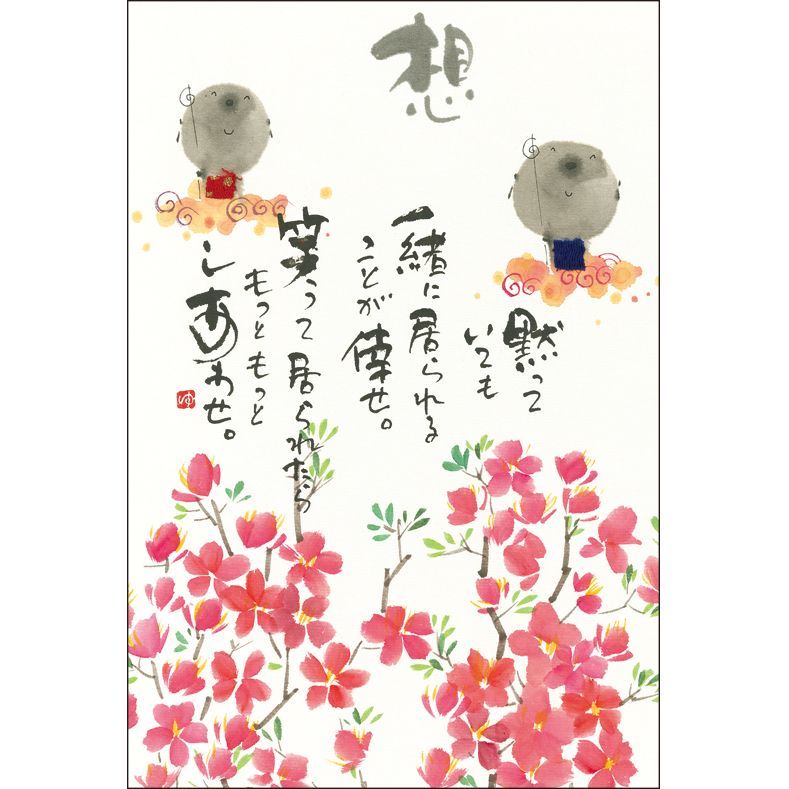 想
黙って
いても
一緒に居られる
ことが倖せ。
笑って居られたら
もっともっと
しあわせ。
ゆ